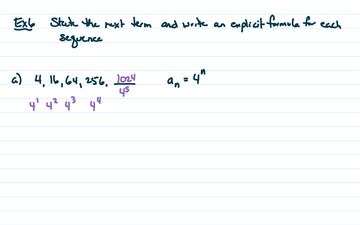 Ex6 State the next term and write an explicit formula for each
sequence
a) 4, 16, 64, 256, 1024 aₙ = 4ⁿ
4¹ 4² 4³ 4⁴ 4⁵